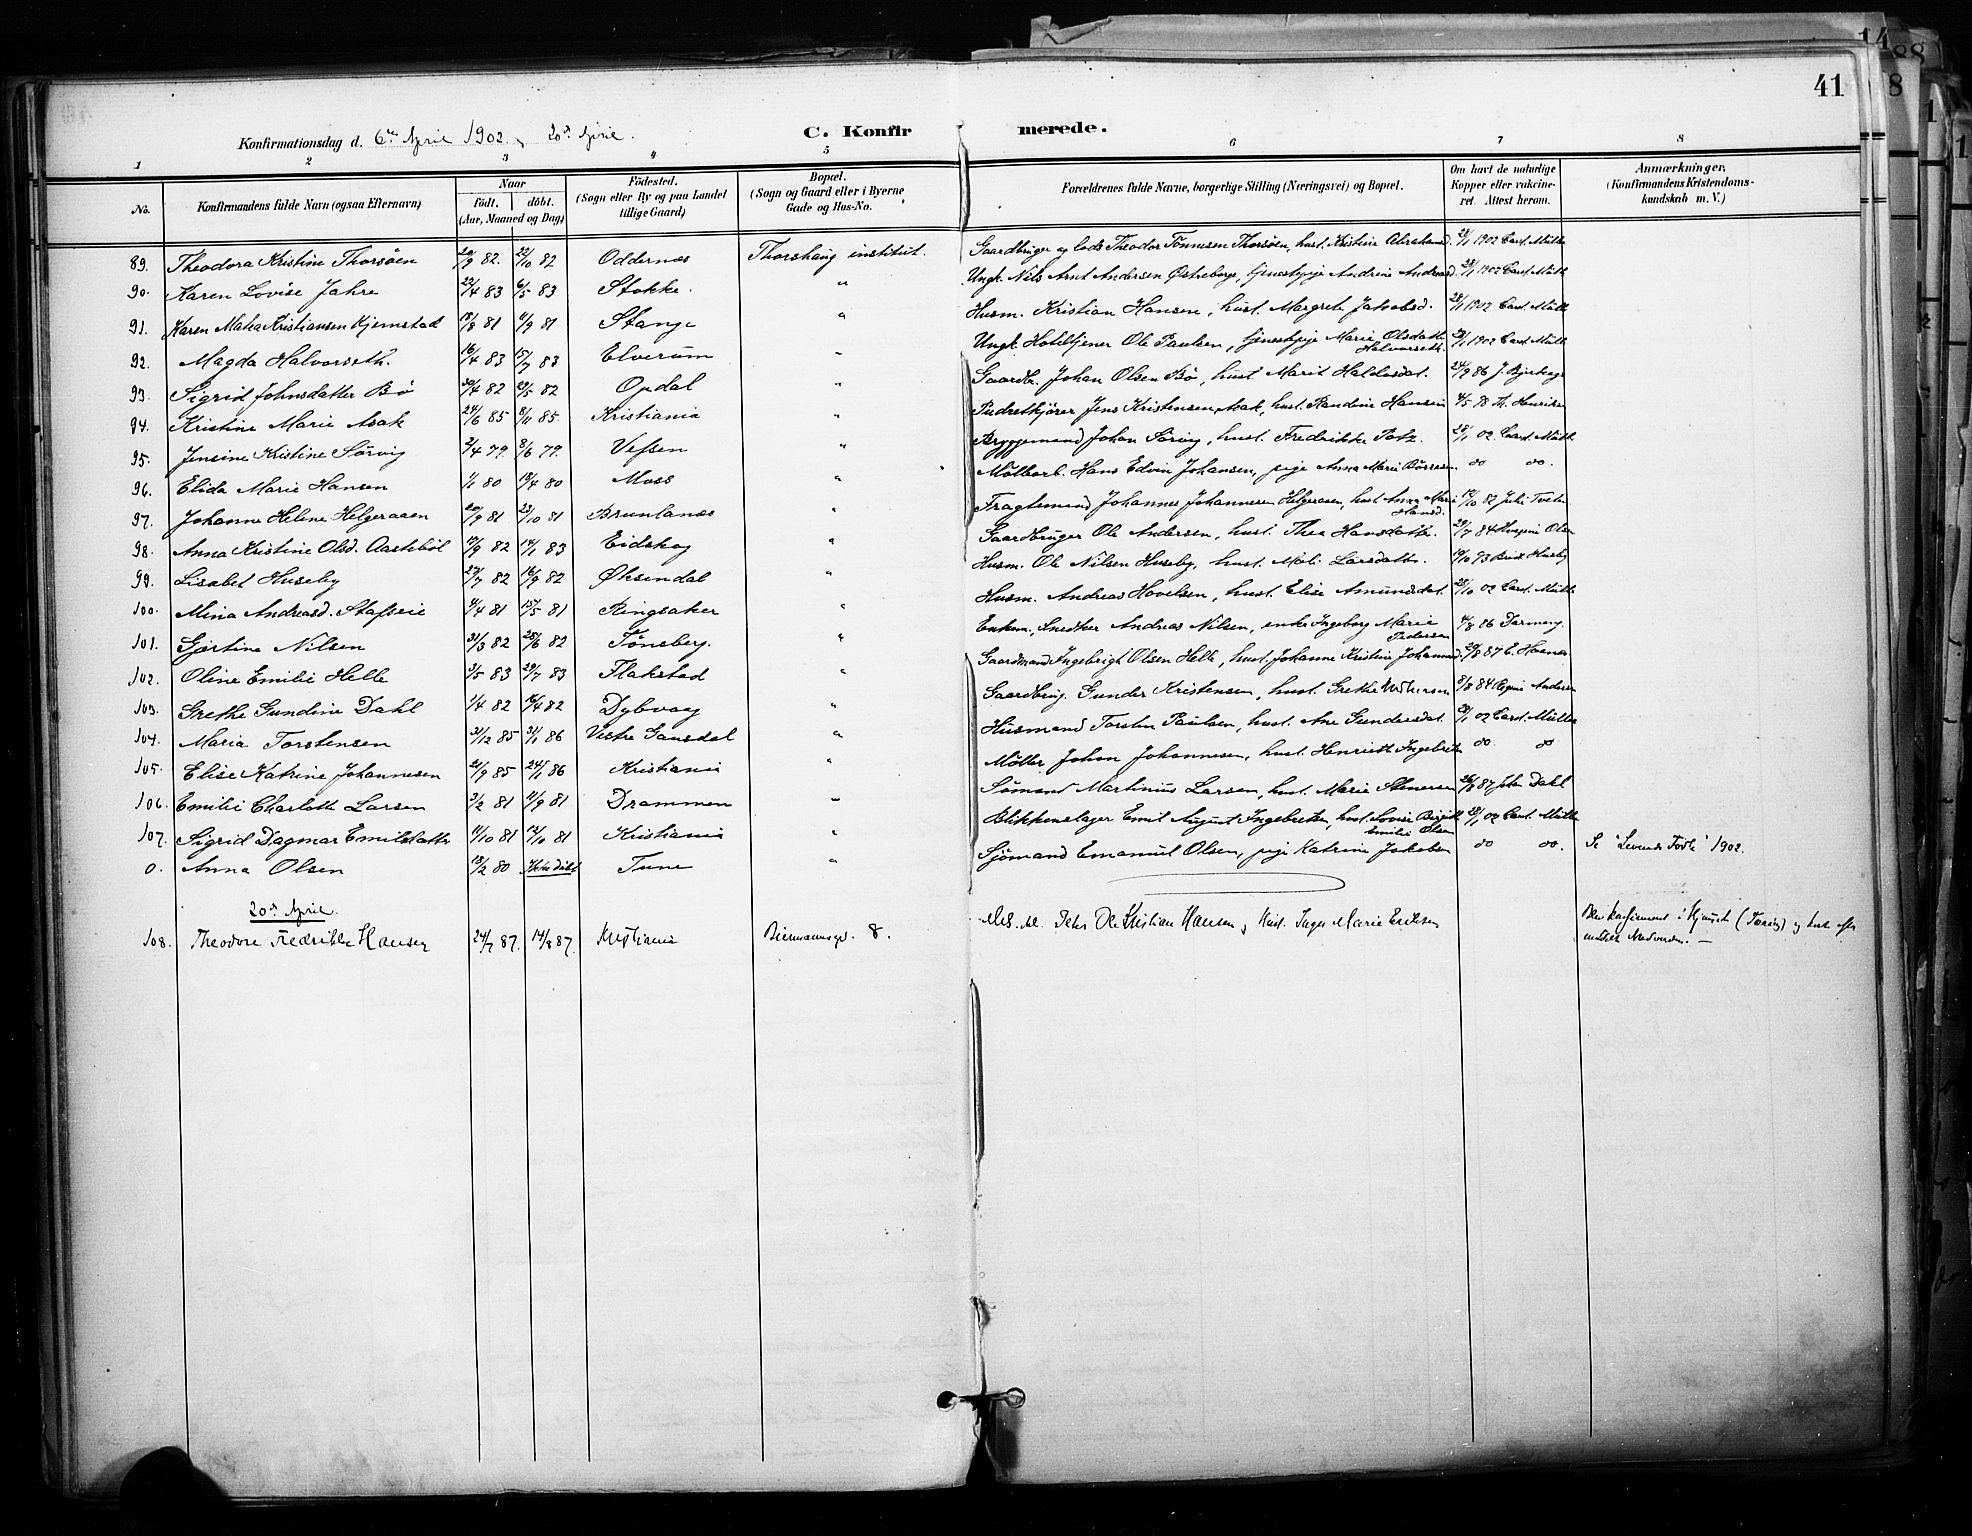 41
Konfirmationsdag d. 6te April 1902, 20de April.
C. Konfirmerede.
1 2 3 4 5 6 7 8
No. Konfirmandens fulde Navn (ogsaa Efternavn) Naar födt. döbt. (Aar, Maaned og Dag) Födested. (Sogn eller By og paa Landet tillige Gaard) Bopæl. (Sogn og Gaard eller i Byerne Gade og Hus-No. Forældrenes fulde Navne, borgerlige Stilling (Næringsvei) og Bopæl. Om havt de naturlige Kopper eller vakcineret. Attest herom. Anmærkninger. (Konfirmandens Kristendomskundskab m. V.)
89. Theodora Kristine Thorsöen 20/9 82. 22/10 82 Oddernæs Thorshaug institut. Gaardbruger og lods Theodor Tönnesen Thorsöen, hust. Kristine Abrahamsd. 28/1 1902 Carl Müller
90. Karen Lovise Jahre 22/4 83 6/5 83 Stokke. " Ungk. Nils Arnt Andersen Østreborge, tjenestepige Andrine Andreasd. 28/1 1902 Carl Müller
91. Karen Mathea Kristiansen Kjemstad 18/8 81 11/9 81 Stange " Husm. Kristian Hansen, hust. Margrete Jakobsd. 28/1 1902 Carl Müll
92. Magda Halvorseth. 16/4 83 15/7 83 Elverum " Ungk. Hoteltjener Ole Paulsen, tjenestepige Marie Olsdatter Halvorseth. 28/1 1902 Carl Müll
93. Sigrid Johnsdatter Bö 30/4 82 29/5 82 Opdal " Gaardbr. Johan Olsen Bö, hust. Marit Haldosdat. 24/9 86 J. Bjerkage
94. Kristine Marie Asak 24/6 85 8/11 85 Kristiania " Pudretkjörer Jens Kristensen Asak, hust. Randine Hansen 4/5 98 Th. Henriksen
95. Jensine Kristine Sörvig 2/4 79. 8/6 79. Vefsen " Bryggemand Johan Sörvig, hust. Fredrikke Potz. 28/1 02 Carl Müll
96. Elida Marie Hansen 1/1 80 18/4 80 Moss " Mölarb. Hans Edvin Johansen, pige Anna Marie Börresen do do.
97. Johanne Helene Helgeraaen 20/9 81 23/10 81 Brunlanæs " Fragtemand Johannes Johannesen Helgeraaen, hust. Anna Marie Hansd. 12/10 82 Juli Tveten
98. Anna Kristine Olsd. Aastebøl 17/9 82 14/1 83 Eidskog " Gaardbruger Ole Andersen, hust. Thea Hansdatter. 29/7 84 Olsen
99. Lisabet Huseby 27/7 82 16/9 82 Øksendal " Husm. Ole Nilsen Huseby, hust. Mali Larsdatter. 10/10 93 Huseby
100. Mina Andreasd. Stafseie 4/4 81 15/5 81 Ringsaker " Husm. Andreas Hovelsen, hust. Elise Amundsdat. 28/10 02 Carl Müll
101. Gjertine Nilsen 31/3 82 25/6 82 Tönsberg. " Enkem., Snedker Andreas Nilsen, enke Ingeborg Marie Pedersen 4/8 86
102. Oline Emilie Helle 3/5 83 29/7 83 Flakstad " Gaardmand Ingebrigt Olsen Helle, hust. Johanne Kristine Johannesd. 20/8 87
103. Grethe Gundine Dahl 1/4 82 16/4 82 Dybvaag " Gaardbrug. Gunder Kristensen, hust. Grethe 8/8 84 Andersen
104. Maria Torstensen 31/12 85 31/1 86 Vestre Gausdal " Husmand Torsten Paulsen, hust. Ane Gundersdat 28/1 02 Carl Müller
105. Elise Katrine Johannesen 21/9 85 24/1 86 Kristiania " Möller Johan Johannesen, hust. Henriette Ingebreth do do
106. Emilie Charlotte Larsen 3/2 81 11/9 81 Drammen " Sömand Martinius Larsen, hust. Marie Stenersen 26/8 87 Johan Dahl
107. Sigrid Dagmar Emilsdatter 11/10 81 12/11 81 Kristiania " Blikkenslager Emil August Ingebretsen, hust. Lovise Birgitte Emilie Olsen 28/1 02 Carl Müller
0. Anna Olsen 13/2 80 Ikke döbt Tune " Sjömand Emanuel Olsen, pige Katrine Jakobsen do do. Se "Levende Födte" 1902.
20de April.
108. Theodore Fredrikke Hansen 24/7 87. 14/8 87. Kristiania Biermannsgd. 8. Peter Ole Kristian Hansen og Hust. Inger Marie Eriksen Blev konfirmeret i Hjemmet (Tæring) og